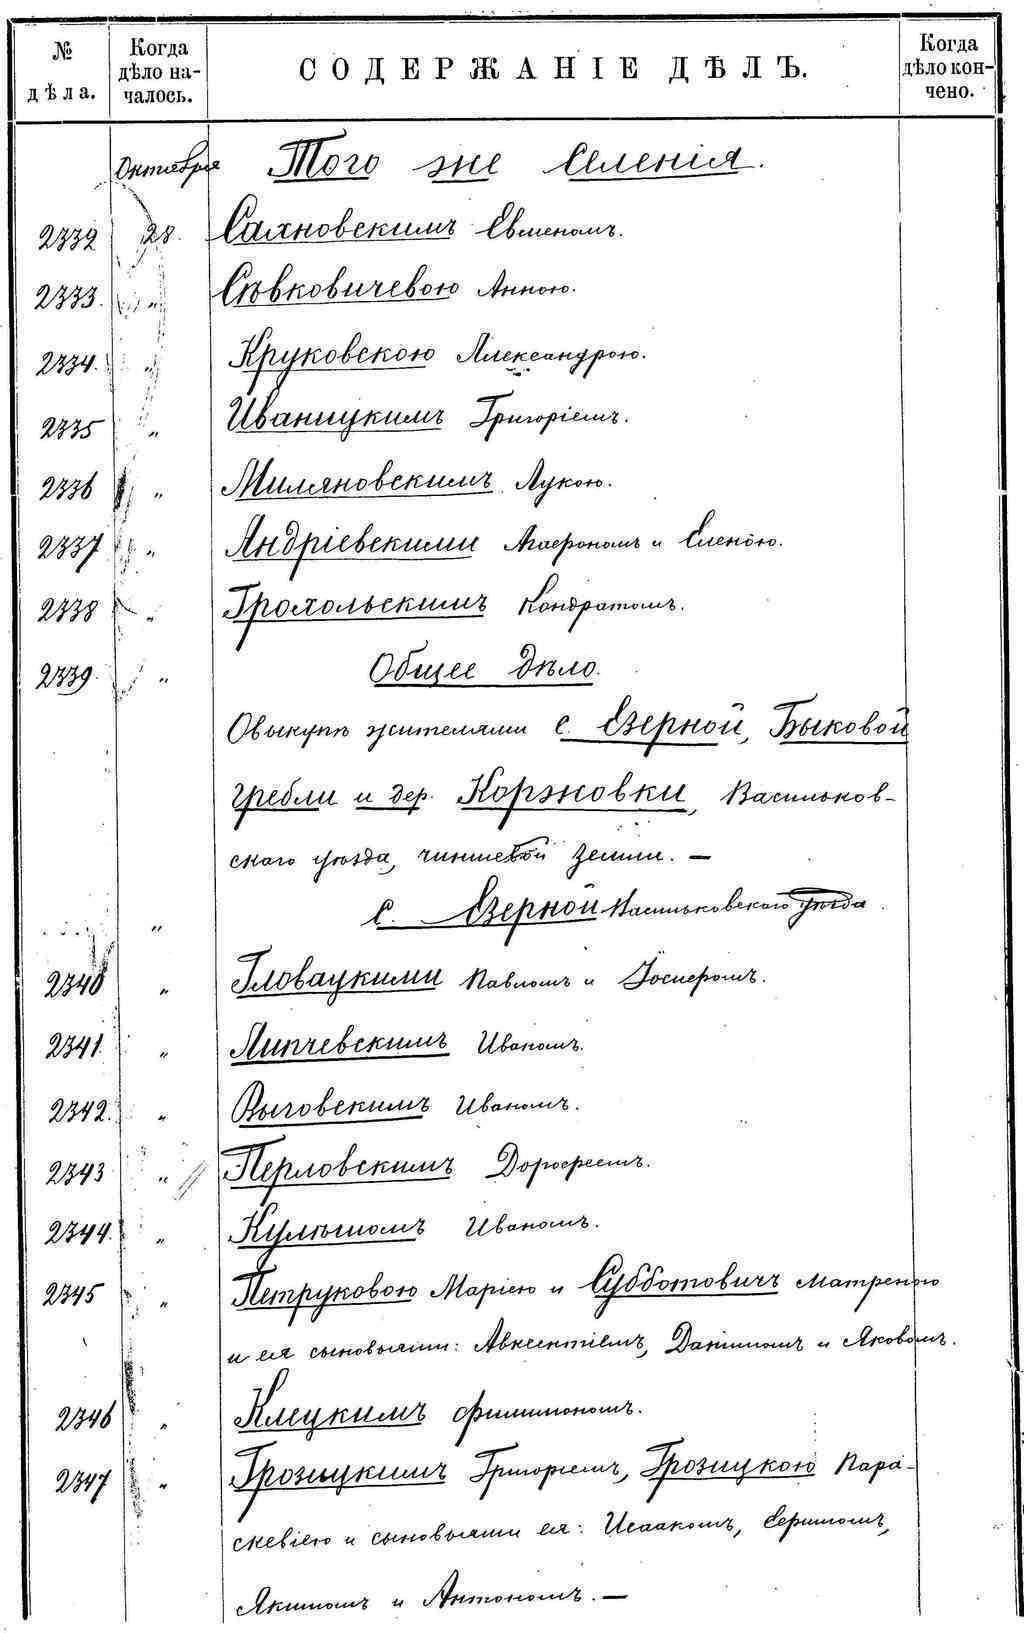 № дѣла. Когда дѣло началось. СОДЕРЖАНІЕ ДѢЛЪ. Когда дѣло кончено.
Октября Того же Селенія.
2332 28. Саяновскимъ Евменомъ.
2333. " Сѣвковичевою Анною.
2334. " Круковскою Александрою.
2335 " Иваницкимъ Григоріемъ.
2336 " Миляновскимъ Лукою.
2337 " Андріевскими Агафономъ и Еленою.
2338 " Грохольскимъ Кондратомъ.
2339. " Общее дѣло.
О выкупѣ жителями с. Езерной, Быковой
гребли и дер. Коржовки, Васильков-
скаго уѣзда, чиншевой земли. —
" с. Езерной Васильковскаго уѣзда.
2340 " Гловацкими Павломъ и Іосифомъ.
2341. " Липчевскимъ Иваномъ.
2342. " Выговскимъ Иваномъ.
2343 " Перловскимъ Дорофеемъ.
2344. " Кулѣшомъ Иваномъ.
2345 " Петруковою Маріею и Субботовичъ Матреною
и ея сыновьями: Авксентіемъ, Даніиломъ и Яковомъ.
2346 " Клецкимъ Филимономъ.
2347 " Грозицкимъ Григоріемъ, Грозицкою Пара-
скевіею и сыновьями ея: Исаакомъ, Ефимомъ,
Якимомъ и Антономъ. —